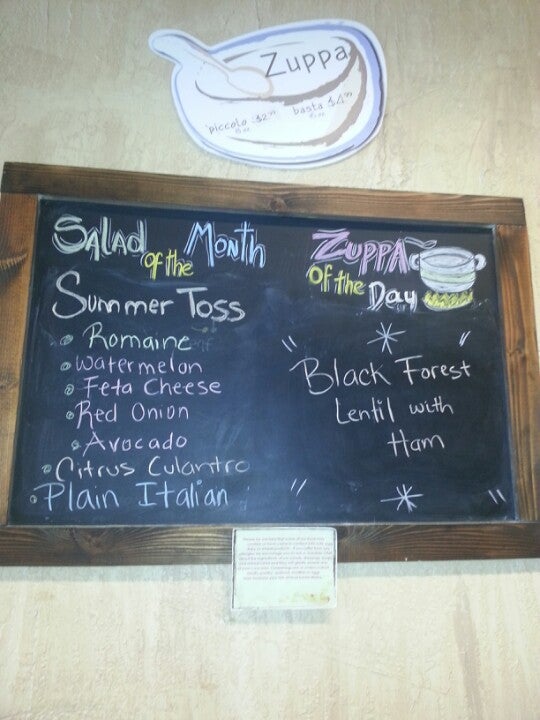 Zuppa
piccolo
basta
Salad
of the
Month
Summer Toss
Romaine
Watermelon
Feta Cheese
Red Onion
Avocado
Citrus Culantro
Plain Italian
Zuppa
of the
Day
" Black Forest
Lentil with
Ham "